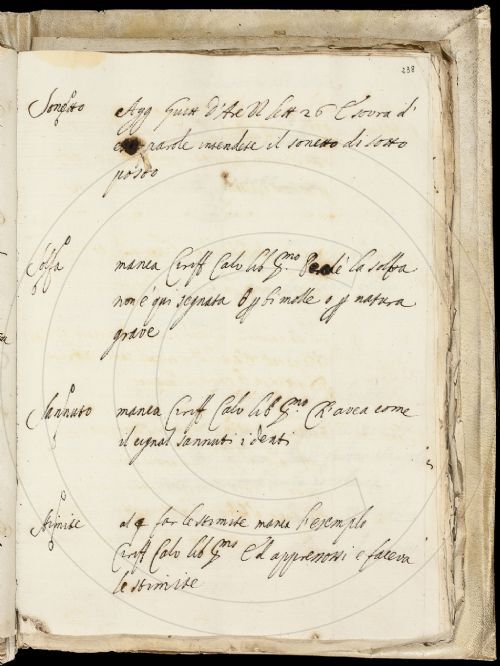 238
Sonetto Agg Guitt d'Ar Vl lett 26 E sovra d'
parole intendete il sonetto di sotto
posto
Solfa manca Ciriff Calv lib p.mo la solfa
non è qui segnata p bi molle o p natura
grave
Sannuto manca Ciriff Calv lib p.mo Ch'avea come
il cignal sannuti i denti
Stimite al far le stimite manca l'esemplo
Ciriff Calv lib p.mo E s'apprenossi e faceva
le stimite